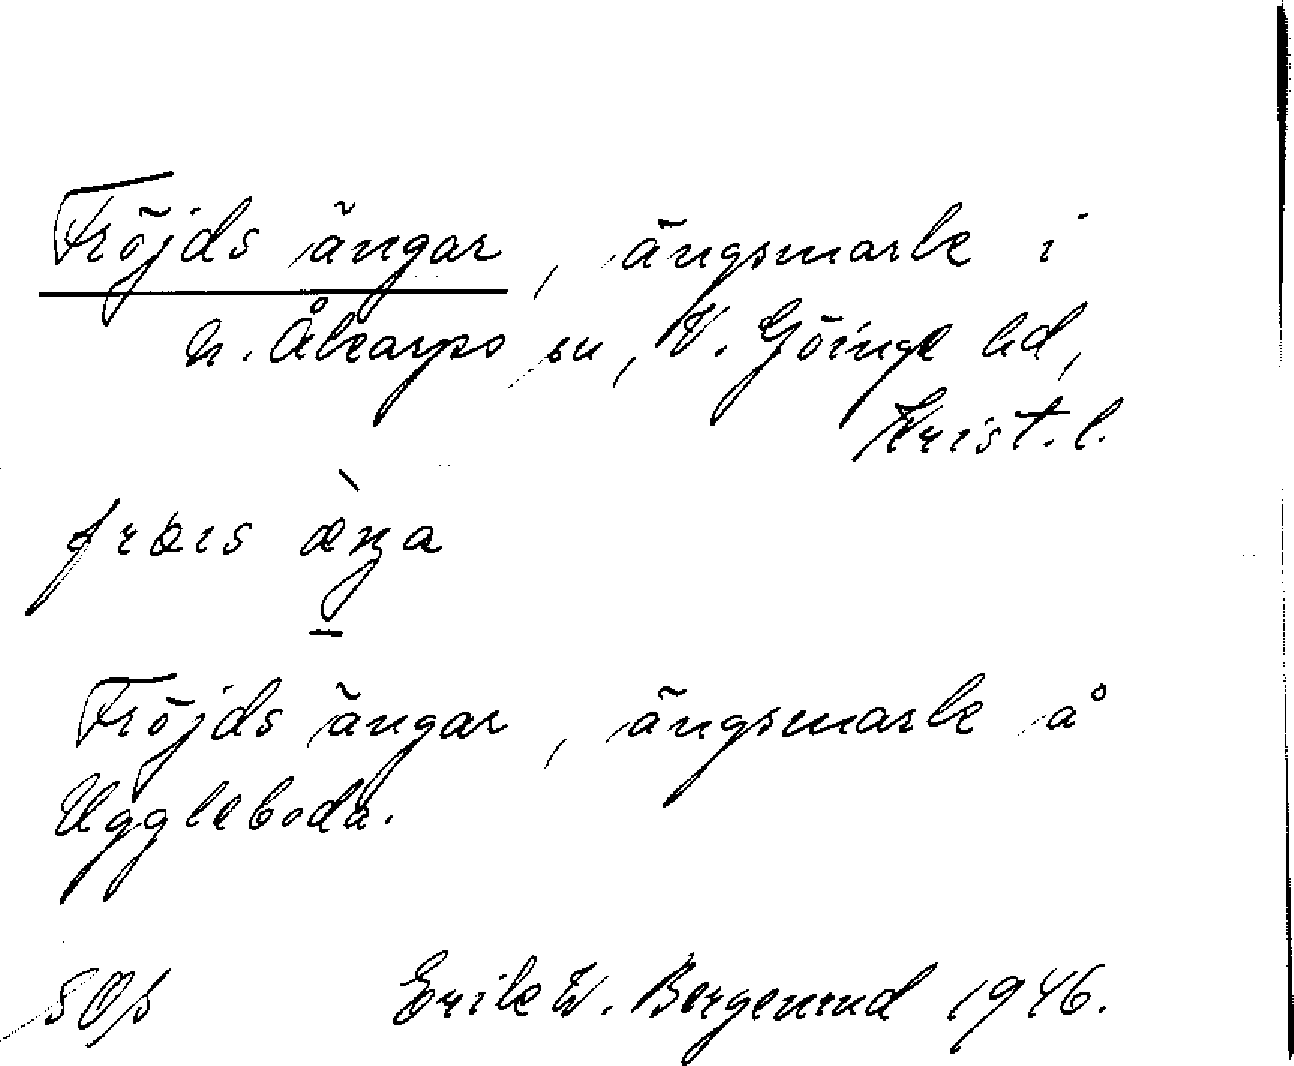 Fröjds ängar, ängsmark i
N. Åkarps sn, V. Göinge hd,
Krist. l.
Fröjds ängar, ängsmark å
Uggleboda.
Erik W. Bergenrud 1946.